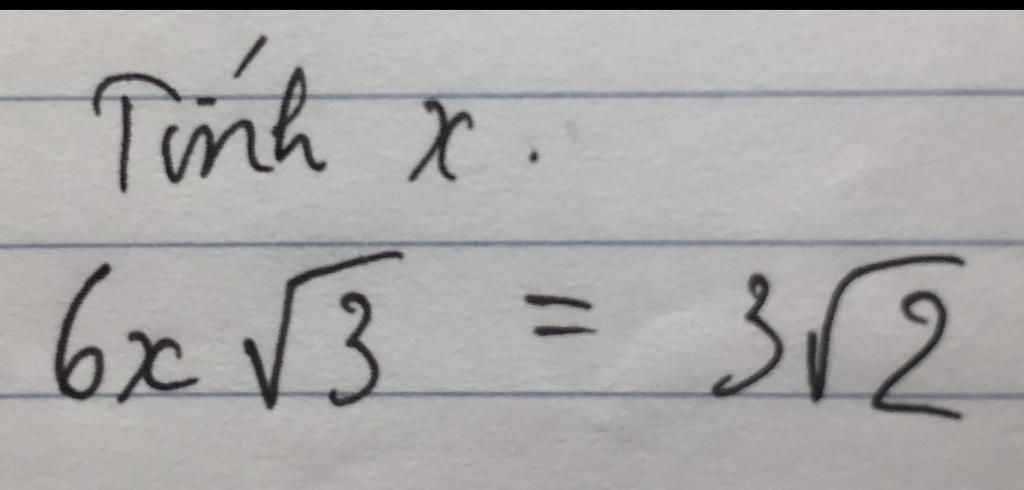 Tính x.
6x√3 = 3√2